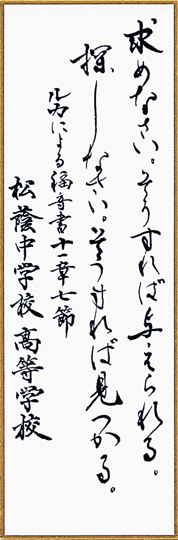 求めなさい。そうすれば与えられる。
探しなさい。そうすれば見つかる。
ルカによる福音書十一章七節
松蔭中学校 高等学校